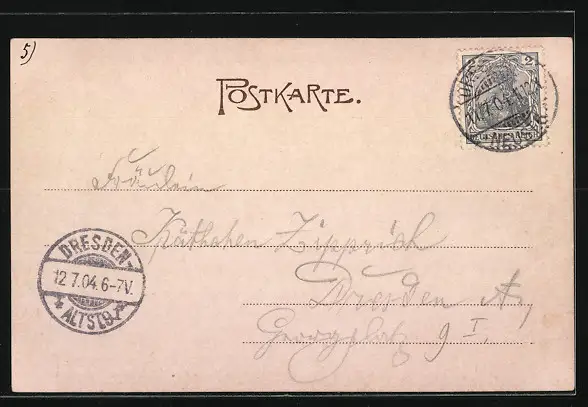 5)
POSTKARTE.
2
11.7.04.
Fräulein
Käthchen Zipprich
Dresden A,
Georgplatz 9 I.
DRESDEN-
12 7.04.6-7V.
* ALTST. 9.